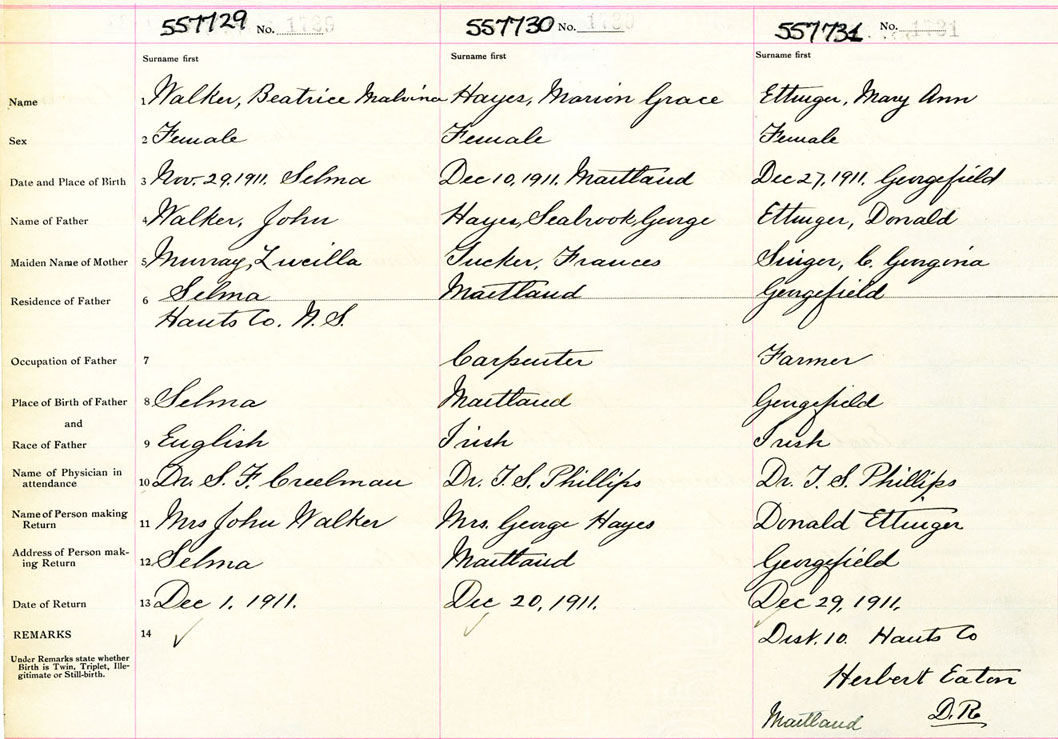 557729 No. 1729 557730 No. 1730 557731 No. 1731
Surname first Surname first Surname first
Name 1 Walker, Beatrice Malvina Hayes, Marion Grace Ettinger, Mary Ann
Sex 2 Female Female Female
Date and Place of Birth 3 Nov. 29, 1911. Selma Dec 10, 1911. Maitland Dec 27, 1911. Georgefield
Name of Father 4 Walker, John Hayes, Seabrook George Ettinger, Donald
Maiden Name of Mother 5 Murray, Lucilla Tucker, Frances Singer, C. Georgina
Residence of Father 6 Selma Maitland Georgefield
Hants Co. N.S.
Occupation of Father 7 Carpenter Farmer
Place of Birth of Father 8 Selma Maitland Georgefield
and
Race of Father 9 English Irish Irish
Name of Physician in
attendance 10 Dr. S. F. Creelman Dr. T. S. Phillips Dr. T. S. Phillips
Name of Person making
Return 11 Mrs John Walker Mrs. George Hayes Donald Ettinger
Address of Person mak-
ing Return 12 Selma Maitland Georgefield
Date of Return 13 Dec 1. 1911. Dec 20, 1911. Dec 29, 1911.
REMARKS 14 Dist. 10. Hants Co
Under Remarks state whether
Birth is Twin, Triplet, Ille-
gitimate or Still-birth.
Herbert Eaton
Maitland D.R.